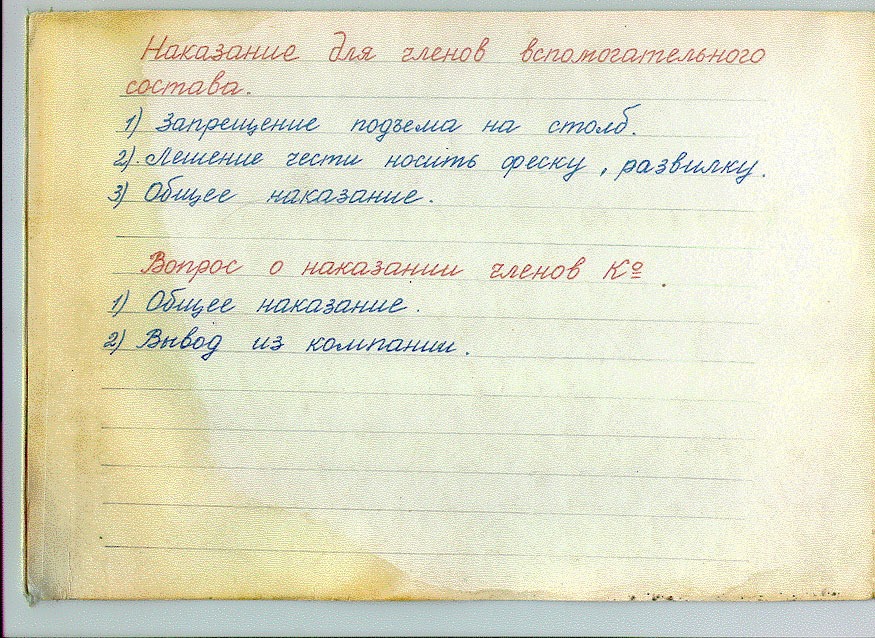 Наказание для членов вспомогательного
состава.
1) Запрещение подъема на столб.
2). Лешение чести носить феску, развилку.
3) Общее наказание.
Вопрос о наказании членов Kº
1) Общее наказание.
2) Вывод из компании.